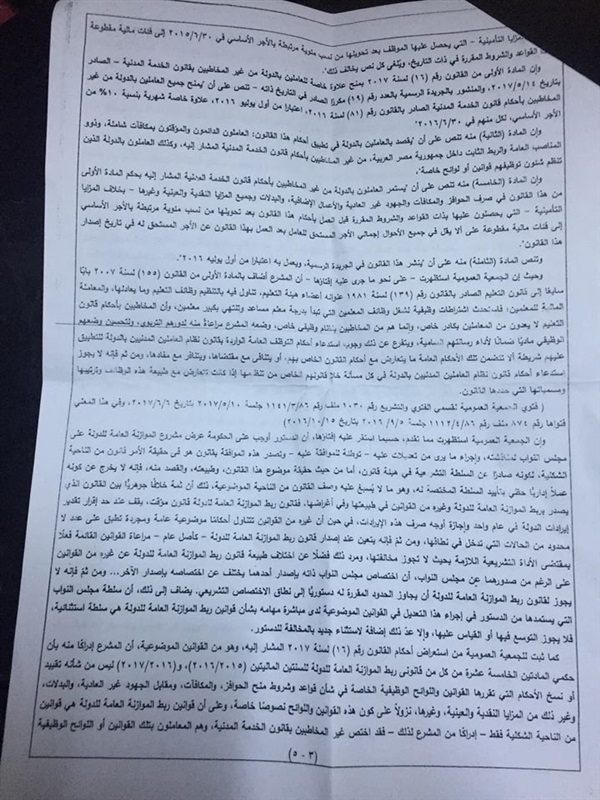 المزايا التأمينية – التي يحصل عليها الموظف بعد تحويلها من نسب مئوية مرتبطة بالأجر الأساسي في ٢٠١٥/٦/٣٠ إلى فئات مالية مقطوعة
القواعد والشروط المقررة في ذات التاريخ، ويُلغى كل نص يخالف ذلك".
وإن المادة الأولى من القانون رقم (١٦) لسنة ٢٠١٧ بمنح علاوة خاصة للعاملين بالدولة من غير المخاطبين بقانون الخدمة المدنية – الصادر
بتاريخ ٢٠١٧/٥/١٤، والمنشور بالجريدة الرسمية بالعدد رقم (١٩) مكررًا الصادر في التاريخ ذاته – تنص على أن "يمنح جميع العاملين بالدولة من غير
المخاطبين بأحكام قانون الخدمة المدنية الصادر بالقانون رقم (٨١) لسنة ٢٠١٦، اعتبارًا من أول يوليو ٢٠١٦، علاوة خاصة شهرية بنسبة ١٠% من
الأجر الأساسي، لكل منهم في ٢٠١٦/٦/٣٠".
وإن المادة (الثانية) منه تنص على أن "يقصد بالعاملين بالدولة في تطبيق أحكام هذا القانون: العاملون الدائمون والمؤقتون بمكافآت شاملة، وذوو
المناصب العامة والربط الثابت داخل جمهورية مصر العربية، من غير المخاطبين بأحكام قانون الخدمة المدنية المشار إليه، وكذلك العاملون بالدولة الذين
تنظم شئون توظيفهم قوانين أو لوائح خاصة".
وإن المادة (الخامسة) منه تنص على أن "يستمر العاملون بالدولة من غير المخاطبين بأحكام قانون الخدمة المدنية المشار إليه بحكم المادة الأولى
من هذا القانون في صرف الحوافز والمكافآت والجهود غير العادية والأعمال الإضافية، والبدلات وجميع المزايا النقدية والعينية وغيرها – بخلاف المزايا
التأمينية – التي يحصلون عليها بذات القواعد والشروط المقررة قبل العمل بأحكام هذا القانون بعد تحويلها من نسب مئوية مرتبطة بالأجر الأساسي
إلى فئات مالية مقطوعة على ألا يقل في جميع الأحوال إجمالي الأجر المستحق للعامل بعد العمل بهذا القانون عن الأجر المستحق له في تاريخ إصدار
هذا القانون".
وتنص المادة (الثامنة) منه على أن "ينشر هذا القانون في الجريدة الرسمية، ويعمل به اعتبارًا من أول يوليه ٢٠١٦".
وحيث إن الجمعية العمومية استظهرت – على نحو ما جرى عليه إفتاؤها – أن المشرع أضاف بالمادة الأولى من القانون (١٥٥) لسنة ٢٠٠٧ بابًا
سابعًا إلى قانون التعليم الصادر بالقانون رقم (١٣٩) لسنة ١٩٨١ عنوانه أعضاء هيئة التعليم، تناول فيه بالتنظيم وظائف التعليم وما يعادلها، والمعاملة
المالية للمعلمين، فاستحدث اشتراطات وظيفية لشغل وظائف المعلمين التي تبدأ بدرجة معلم مساعد وتنتهي بكبير معلمين، وأن المخاطبين بأحكام قانون
التعليم لا يعدون من المعاملين بكادر خاص، وإنما هم من المخاطبين بنظام وظيفي خاص، وضعه المشرع مراعاة منه لدورهم التربوي، ولتحسين وضعهم
الوظيفي ماديًا ضمانًا لأداء رسالتهم السامية، ويتفرع عن ذلك وجوب استدعاء أحكام التوظف العامة الواردة بقانون نظام العاملين المدنيين بالدولة للتطبيق
عليهم شريطة ألا تتضمن تلك الأحكام العامة ما يتعارض مع أحكام القانون الخاص بهم، أو يتنافى مع مقتضاها، ويتنافر مع مفادها، ومن ثم فإنه لا يجوز
استدعاء أحكام قانون نظام العاملين المدنيين بالدولة في كل مسألة خلا قانونهم الخاص من تنظيمها إذا كانت تتعارض مع طبيعة هذه الوظائف وترتيبها
ومسمياتها التي حددها القانون.
( فتوى الجمعية العمومية لقسمي الفتوى والتشريع رقم ١٠٣٠ ملف رقم ١١٤١/٣/٨٦ جلسة ٢٠١٧/٥/١٠ بتاريخ ٢٠١٧/٦/٦، وفي هذا المعنى
فتواها رقم ٨٧٤ ملف رقم ١١١٢/٤/٨٦ جلسة ٢٠١٦/١/٥ بتاريخ ٢٠١٦/١٠/١٥)
وإن الجمعية العمومية استظهرت مما تقدم، حسبما استقر عليه إفتاؤها، أن الدستور أوجب على الحكومة عرض مشروع الموازنة العامة للدولة على
مجلس النواب لمناقشته، وإجراء ما يرى من تعديلات عليه – توطئة للموافقة عليه – وتصدر هذه الموافقة بقانون هو في حقيقة الأمر قانون من الناحية
الشكلية، لكونه صادرًا عن السلطة التشريعية في هيئة قانون، أما من حيث حقيقة موضوع هذا القانون، وطبيعته، والقصد منه، فإنه لا يخرج عن كونه
عملاً إداريًا حظى بتأييد السلطة المختصة له، وهو ما لا يُسبغ عليه وصف القانون من الناحية الموضوعية، ذلك أن ثمة خلافًا جوهريًا بين القانون الذي
يصدر بربط الموازنة العامة للدولة وغيره من القوانين في طبيعتها وفي أغراضها، فقانون ربط الموازنة العامة للدولة قانون مؤقت، يقف عند حد إقرار تقدير
إيرادات الدولة في عام واحد وإجازة أوجه صرف هذه الإيرادات، في حين أن غيره من القوانين تتناول أحكامًا موضوعية عامة ومجردة تطبق على عدد لا
محدود من الحالات التي تدخل في نطاقها، ومن ثم فإنه يتعين عند إصدار قانون ربط الموازنة العامة للدولة – كأصل عام – مراعاة القوانين القائمة فعلًا
بمقتضى الأداة التشريعية اللازمة بحيث لا تجوز مخالفتها، ومرد ذلك فضلًا عن اختلاف طبيعة قانون ربط الموازنة العامة للدولة عن غيره من القوانين
على الرغم من صدورهما عن مجلس النواب، أن اختصاص مجلس النواب ذاته بإصدار أحدهما يختلف عن اختصاصه بإصدار الآخر... ومن ثم فإنه لا
يجوز لقانون ربط الموازنة العامة للدولة أن يجاوز الحدود المقررة له دستوريًا إلى نطاق الاختصاص التشريعي. يضاف إلى ذلك، أن سلطة مجلس النواب
التي يستمدها من الدستور في إجراء هذا التعديل في القوانين الموضوعية لدى مباشرة مهامه بشأن قوانين ربط الموازنة العامة للدولة هي سلطة استثنائية،
فلا يجوز التوسع فيها أو القياس عليها، وإلا عد ذلك إضافة لاستثناء جديد بالمخالفة للدستور.
كما ثبت للجمعية العمومية من استعراض أحكام القانون رقم (١٦) لسنة ٢٠١٧ المشار إليه، وهو من القوانين الموضوعية، أن المشرع إدراكًا منه بأن
حكمي المادتين الخامسة عشرة من كل من قانوني ربط الموازنة العامة للدولة للسنتين الماليتين (٢٠١٦/٢٠١٥)، و(٢٠١٧/٢٠١٦) ليس من شأنه تقييد
أو نسخ الأحكام التي تقررها القوانين واللوائح الوظيفية الخاصة في شأن قواعد وشروط منح الحوافز، والمكافآت، ومقابل الجهود غير العادية، والبدلات،
وغير ذلك من المزايا النقدية والعينية، وغيرها، نزولًا على كون هذه القوانين واللوائح نصوصًا خاصة، وعلى أن قوانين ربط الموازنة العامة للدولة هي قوانين
من الناحية الشكلية فقط – إدراكًا من المشرع لذلك – فقد اختص غير المخاطبين بقانون الخدمة المدنية، وهم المعاملون بتلك القوانين أو اللوائح الوظيفية
(٣ - ٥)